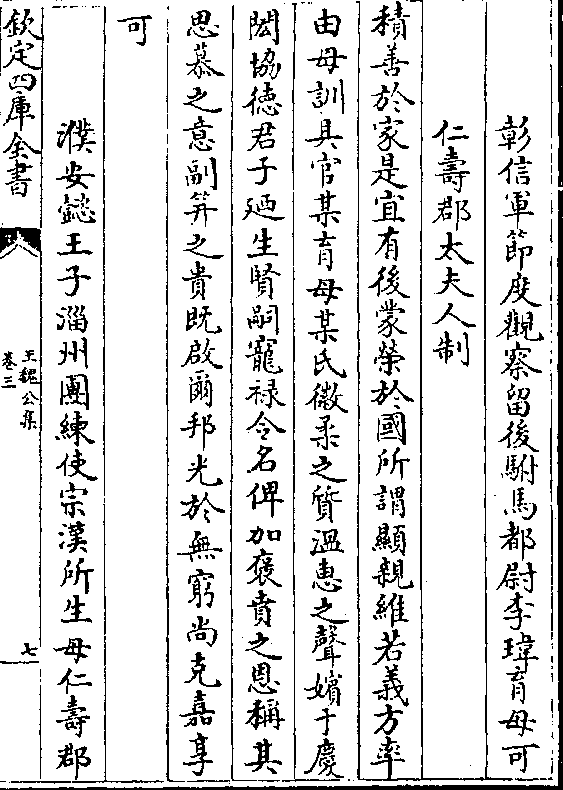 彰信軍節度觀察留後駙馬都尉李瑋育母可
仁壽郡太夫人制
積善於家是宜有後蒙榮於國所謂顯親維若義方率
由母訓具官某育母某氏徽柔之質溫惠之聲嬪于慶
閎協德君子廼生賢嗣寵祿令名俾加褒賁之恩稱其
思慕之意副笄之貴既啟爾邦光於無窮尚克嘉享
可
濮安懿王子淄州團練使宗漢所生母仁壽郡
欽定四庫全書
王魏公集
卷三
七